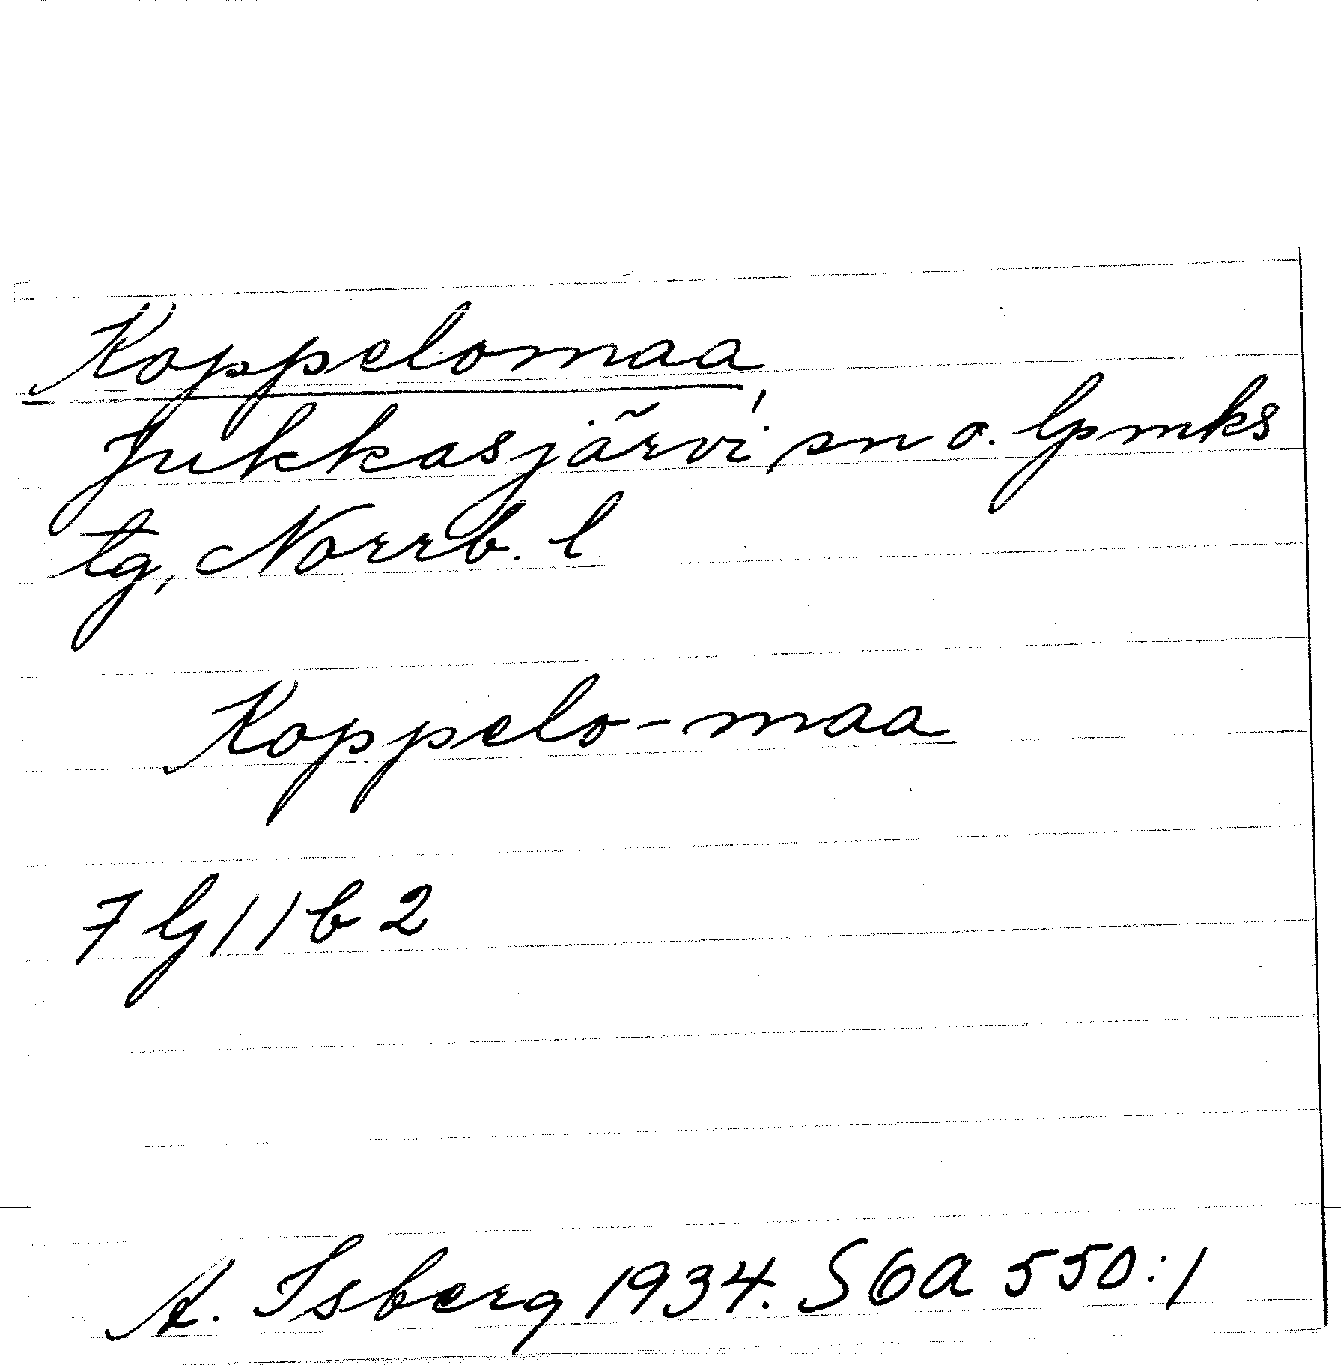 Koppelomaa
Jukkasjärvi sn o. lpmks
tg, Norrb. l
Koppelo-maa
7 lj 11 b 2
A. Isberg 1934. SOA 550:1